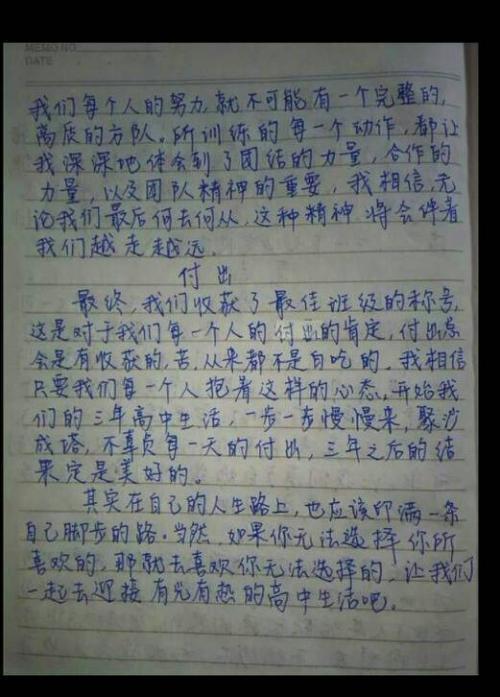 MEMO NO.
DATE
我们每个人的努力,就不可能有一个完整的,
高质的方队。所训练的每一个动作,都让
我深深地体会到了团结的力量,合作的
力量,以及团队精神的重要,我相信,无
论我们最后何去何从,这种精神将会伴着
我们越走越远。
付出
最终,我们收获了最佳班级的称号,
这是对于我们每一个人的付出的肯定,付出总
会是有收获的,苦,从来都不是白吃的。我相信
只要我们每一个人抱着这样的心态,开始我
们的三年高中生活,一步一步慢慢来,聚沙
成塔,不辜负每一天的付出,三年之后的结
果定是美好的。
其实在自己的人生路上,也应该印满一条
自己脚步的路。当然,如果你无法选择你所
喜欢的,那就去喜欢你无法选择的,让我们
一起去迎接有光有热的高中生活吧。